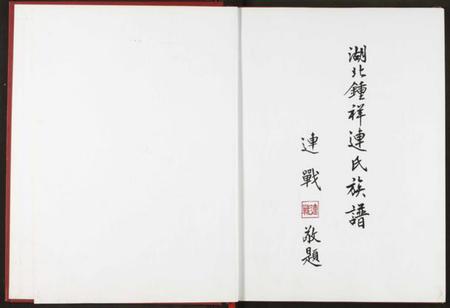 湖北鍾祥連氏族譜
連戰
連戰
敬題